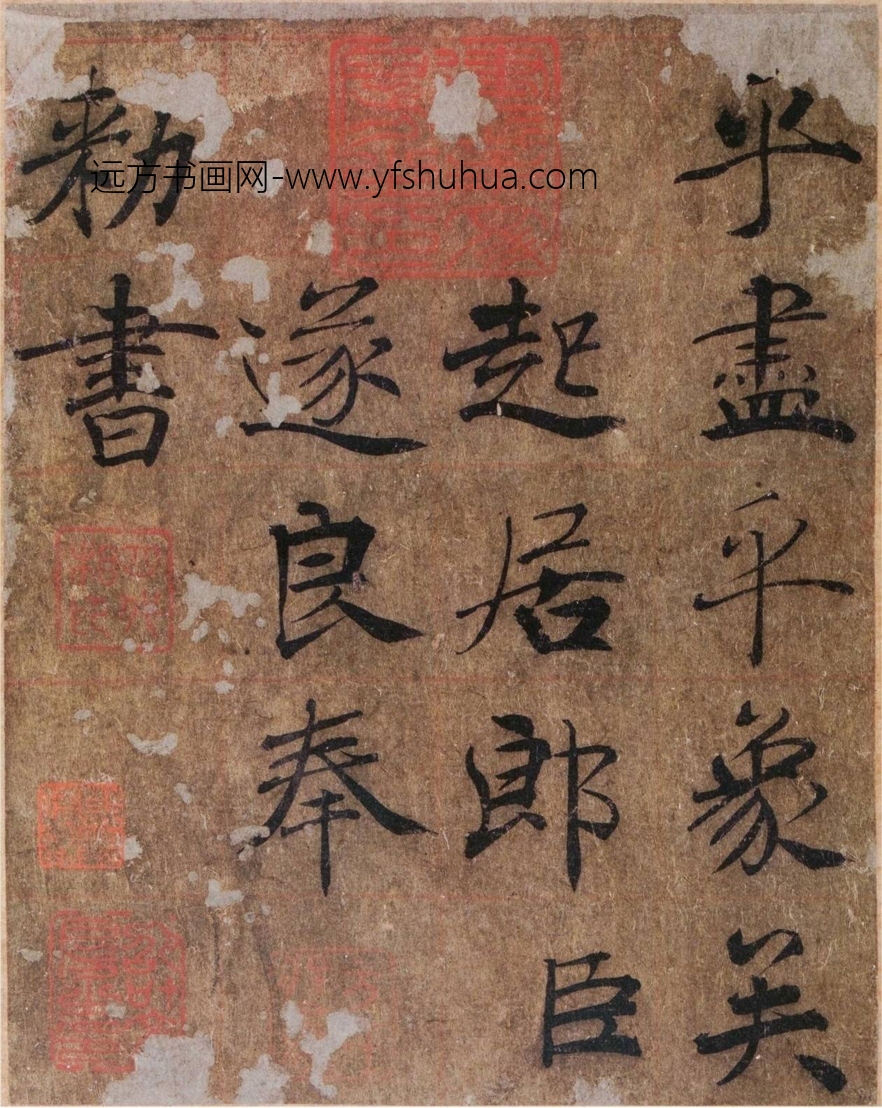 乎盡乎象矣
起居郎臣
遂良奉
勑書
远方书画网-www.yfshuhua.com